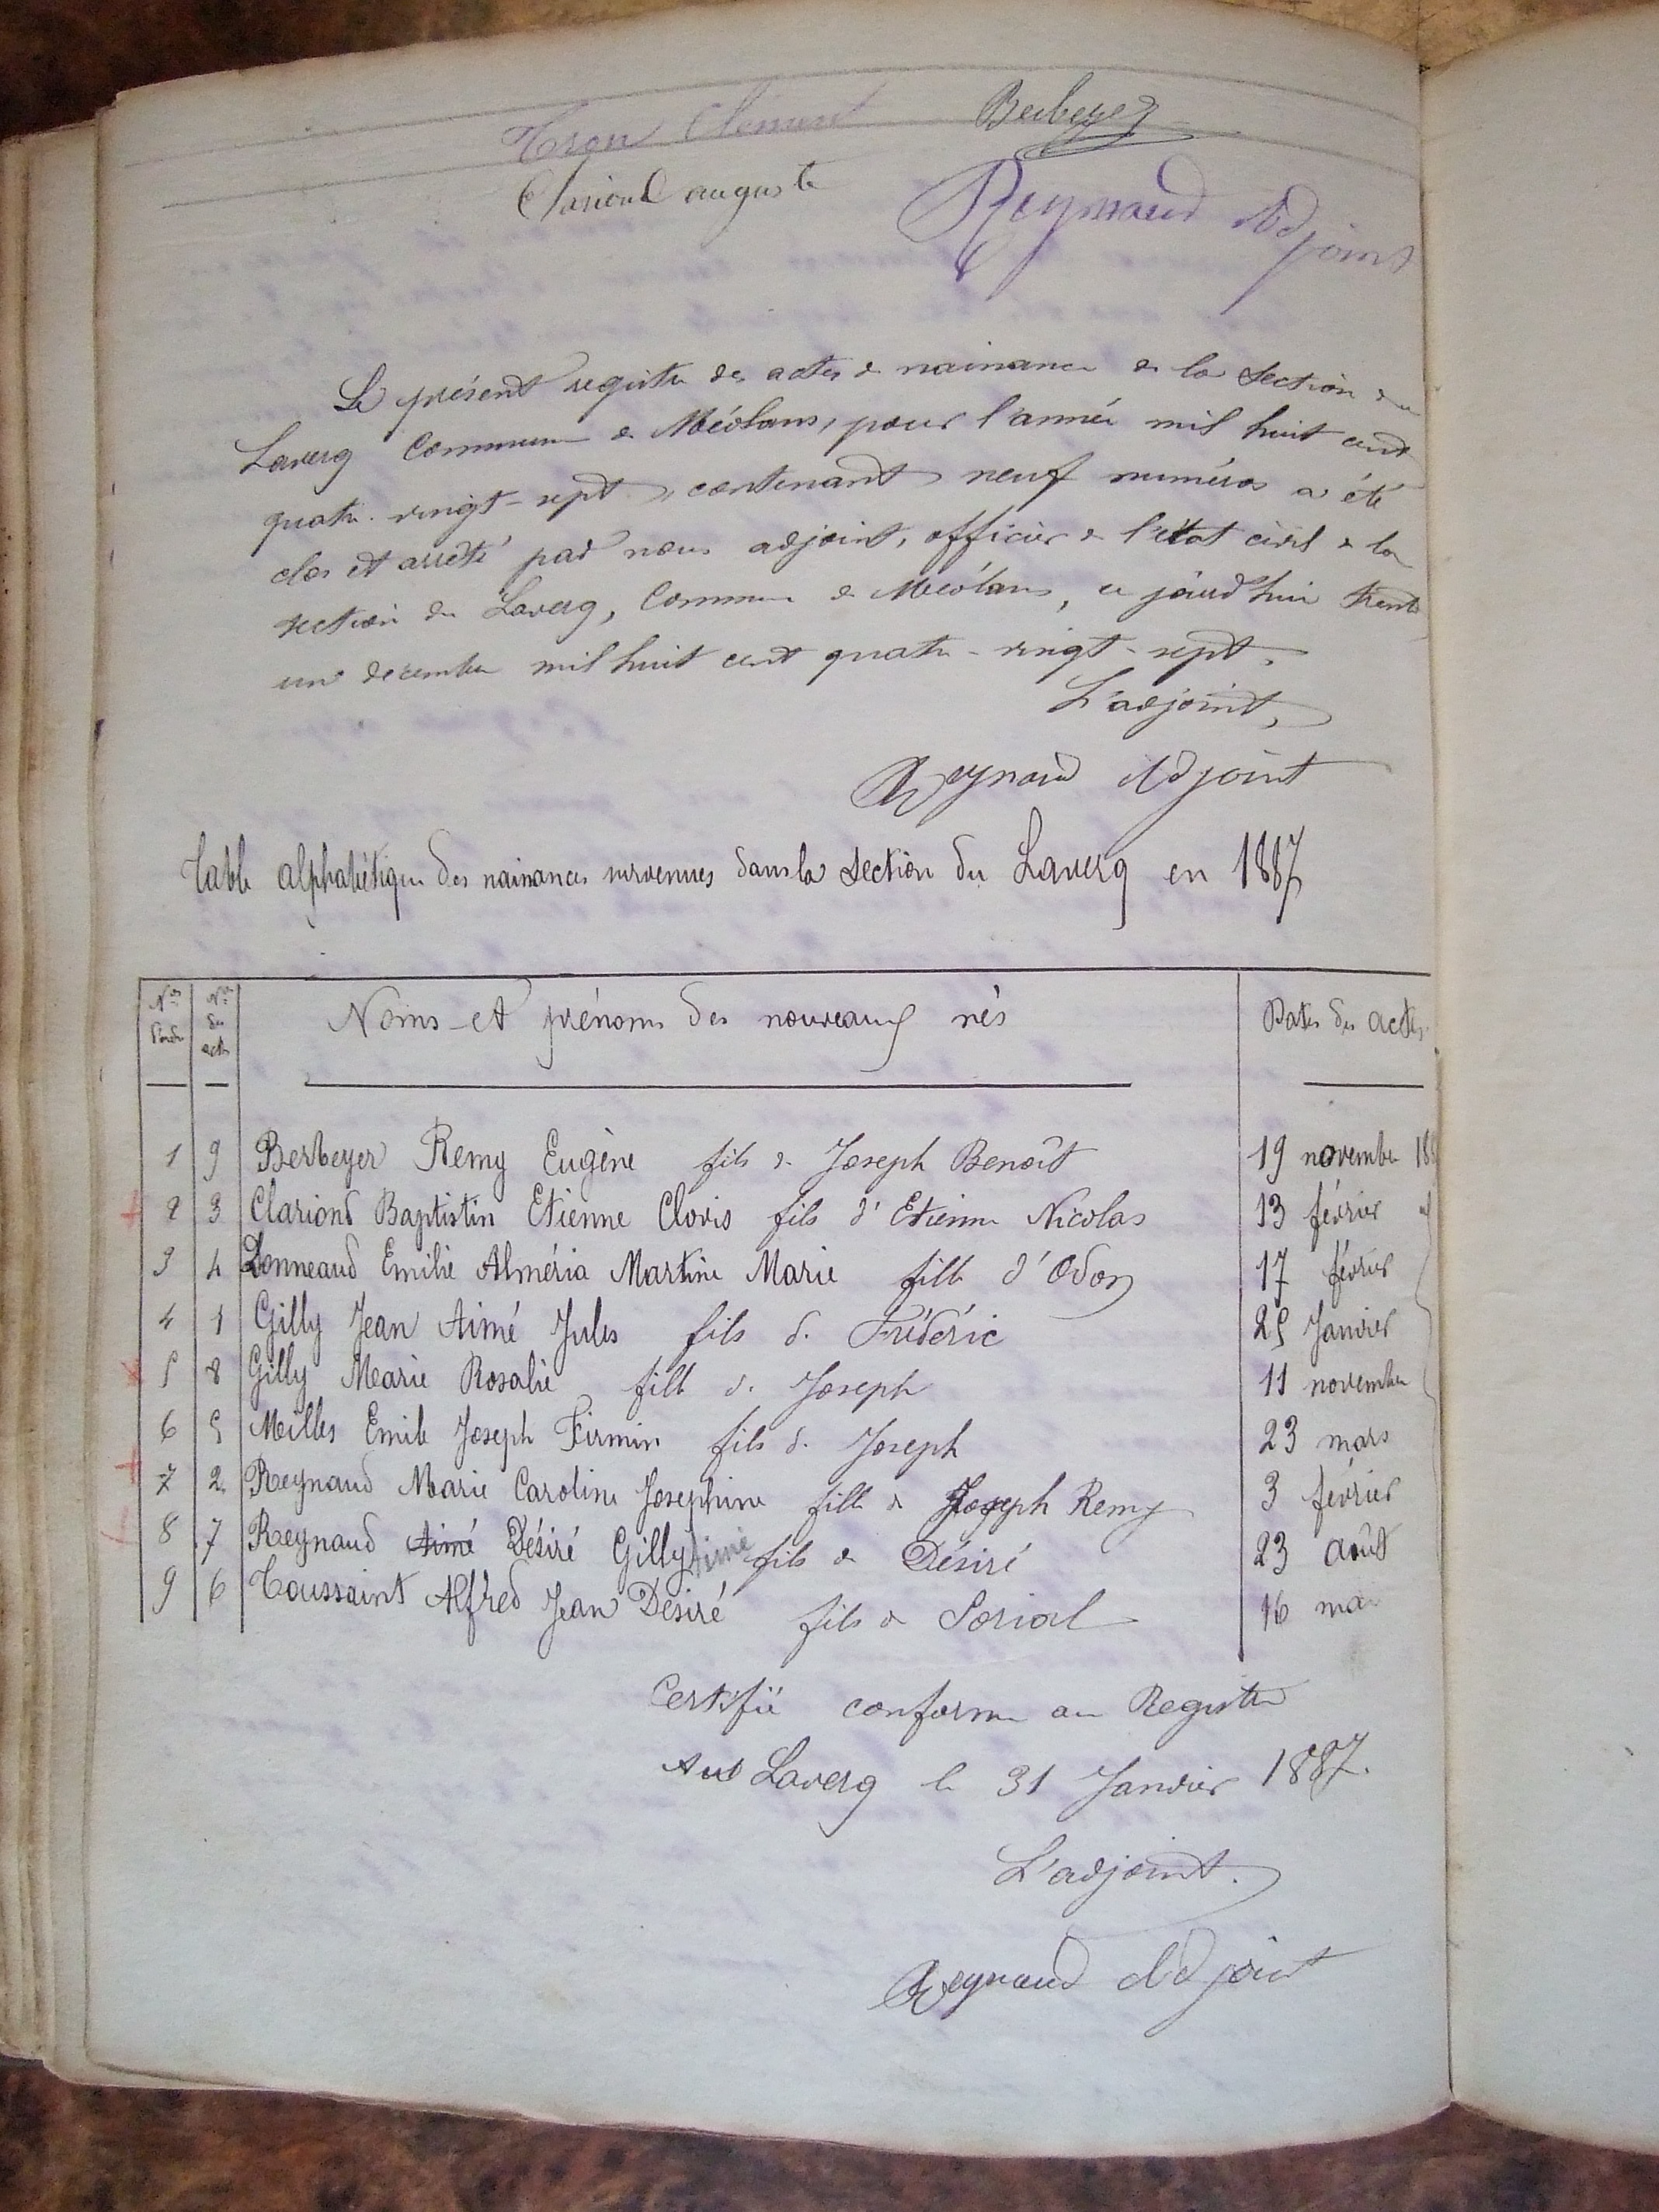 Tron Clément
Berbeyer
Clariond auguste
Reynaud Adjoint
Le présent registre des actes de naissance de la Section du
Laverq Commune de Méolans, pour l'année mil huit cent
quatre-vingt-sept, contenant neuf numéros a été
clos et arrêté par nous adjoint, officier de l'état civil de la
section du Laverq, Commune de Méolans, ce jourd'hui trente
un decembre mil huit cent quatre-vingt-sept.
L'adjoint,
Reynaud Adjoint
Table alphabétique des naissances survenues dans la Section du Laverq en 1887
Nos d'ordre Nos des actes Noms et prénoms des nouveaux nés Dates des actes
1 9 Berbeyer Remy Eugène fils de Joseph Benoît 19 novembre 188
2 3 Clariond Baptistin Etienne Clovis fils d'Etienne Nicolas 13 février
3 4 Donneaud Emilie Alméria Martine Marie fille d'Odon 17 février
4 1 Gilly Jean Aimé Jules fils de Frédéric 25 Janvier
5 8 Gilly Marie Rosalie fille de Joseph 11 novembre
6 5 Milles Emile Joseph Firmin fils de Joseph 23 mars
7 2 Reynaud Marie Caroline Josephine fille de Joseph Remy 3 février
8 7 Reynaud Aimé Désiré Gilly Aimé fils de Désiré 23 août
9 6 Toussaint Alfred Jean Désiré fils de Sorial 16 mai
Certifié conforme au Registre
Au Laverq le 31 Janvier 1887.
L'adjoint.
Reynaud Adjoint